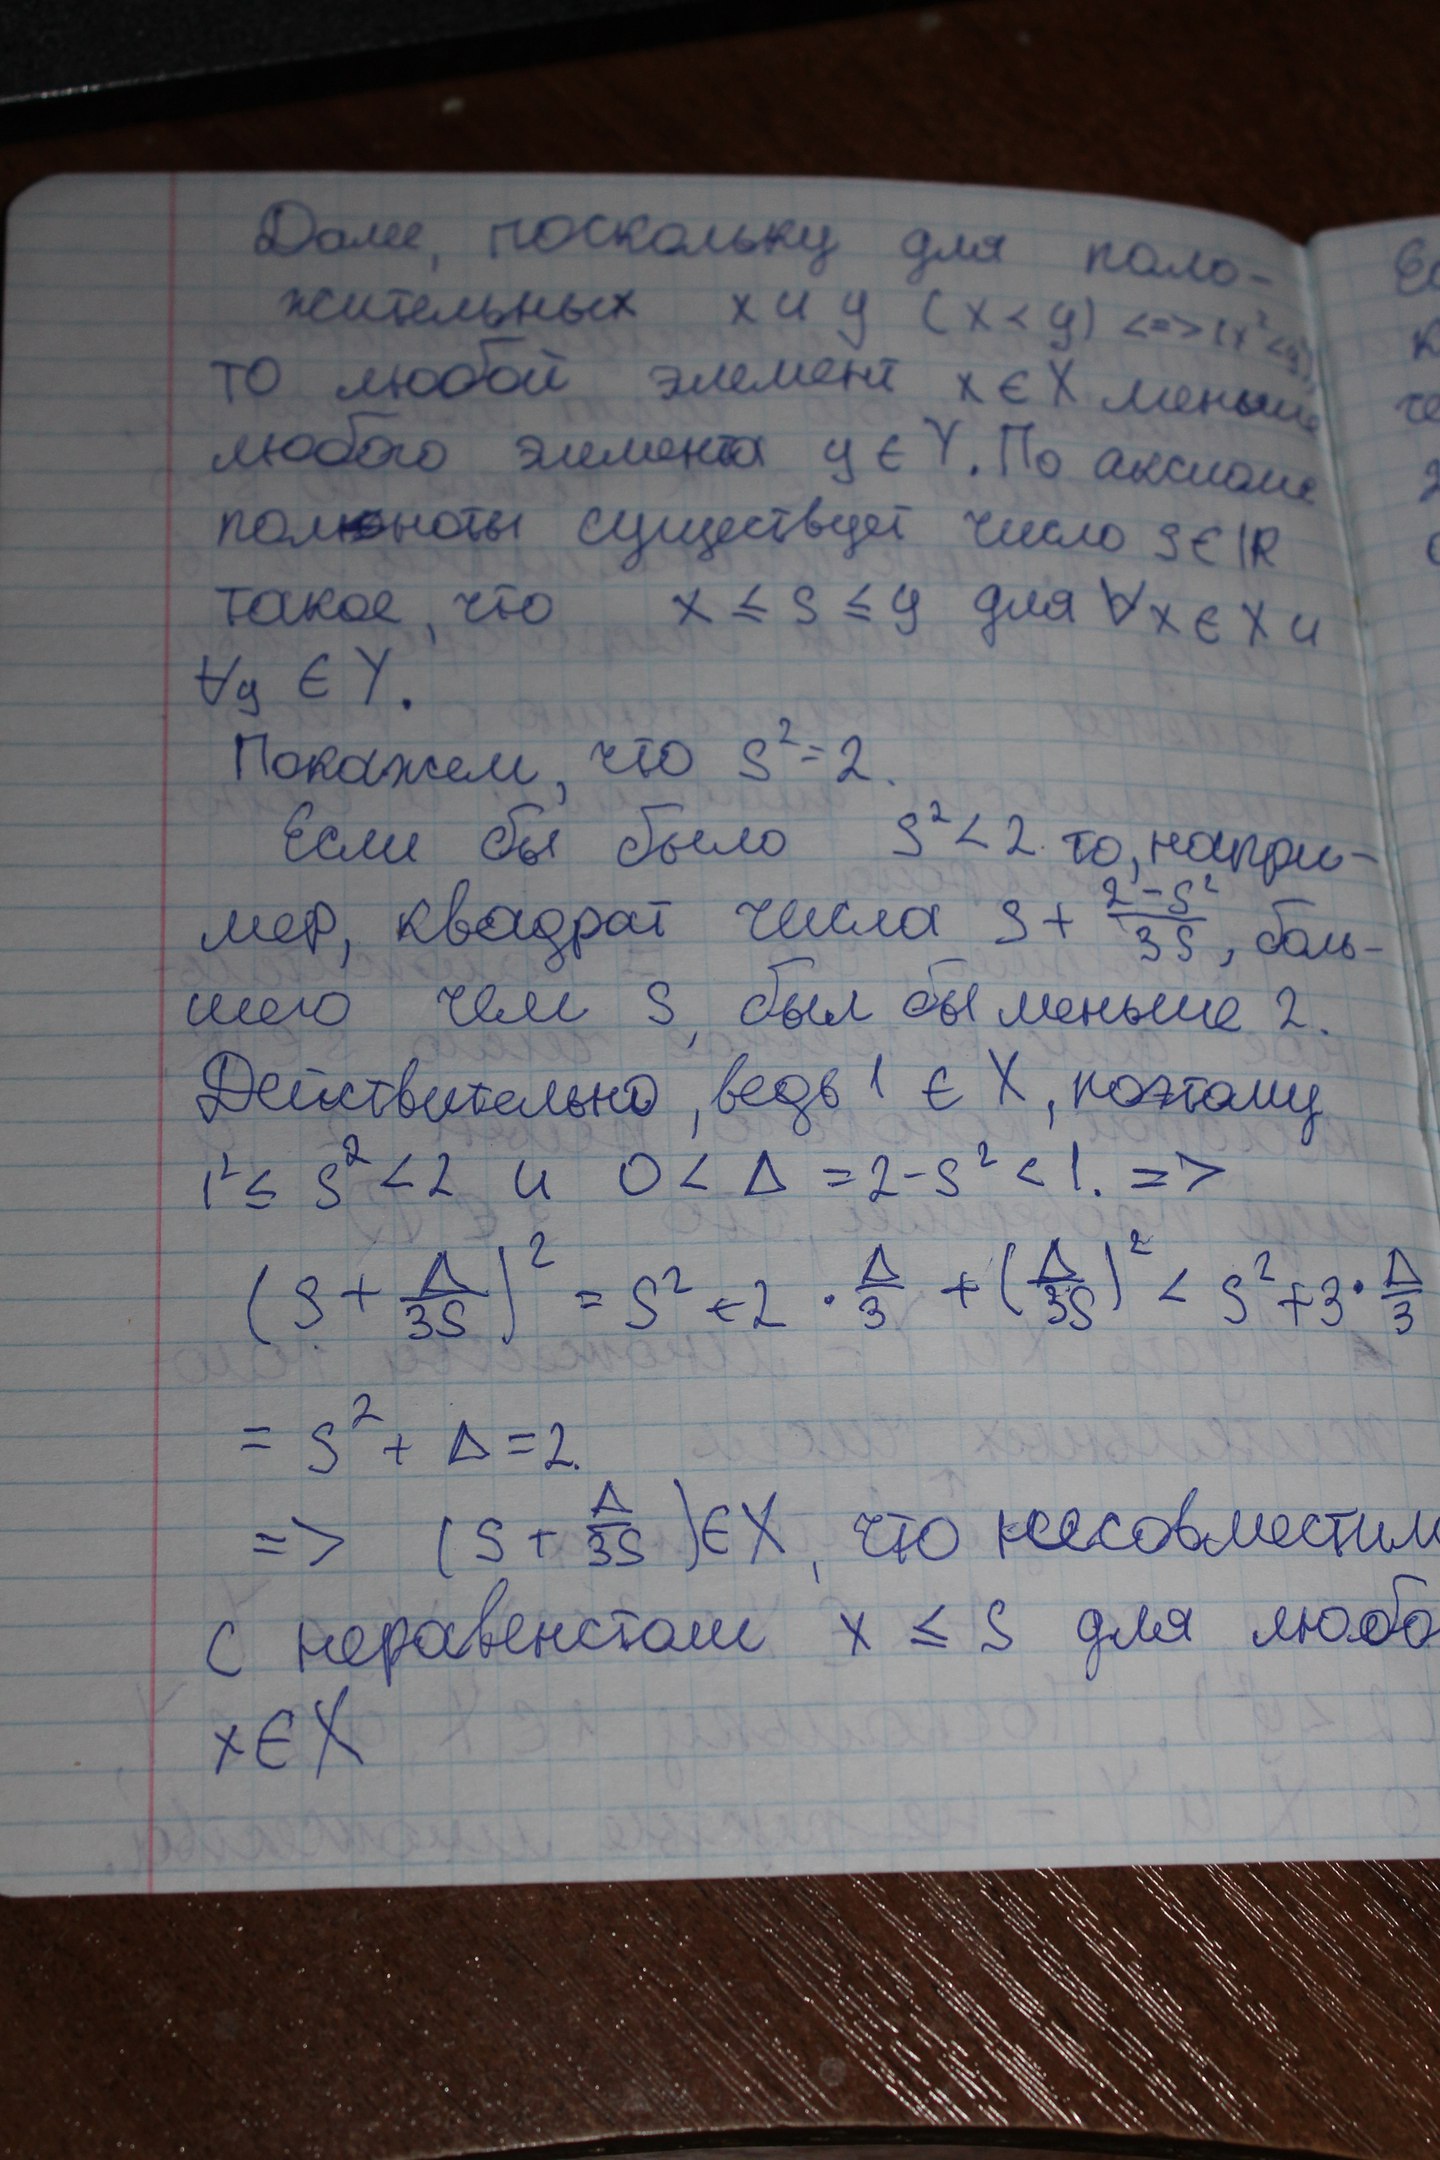 Далее, поскольку для поло-
жительных x и y (x < y) <=> (x² < y²),
то любой элемент x ∈ X меньше
любого элемента y ∈ Y. По аксиоме
полноты существует число s ∈ ℝ
такое, что x ≤ s ≤ y для ∀x ∈ X и
∀y ∈ Y.
Покажем, что s² = 2.
Если бы было s² < 2 то, напри-
мер, квадрат числа s + (2 - s²)/(3s), боль-
шего чем s, был бы меньше 2.
Действительно, ведь 1 ∈ X, поэтому
1² ≤ s² < 2 и 0 < Δ = 2 - s² < 1. =>
(s + Δ/(3s))² = s² + 2 · Δ/3 + (Δ/(3s))² < s² + 3 · Δ/3
= s² + Δ = 2.
=> (s + Δ/(3s)) ∈ X, что несовместим
с неравенстом x ≤ s для любо
x ∈ X